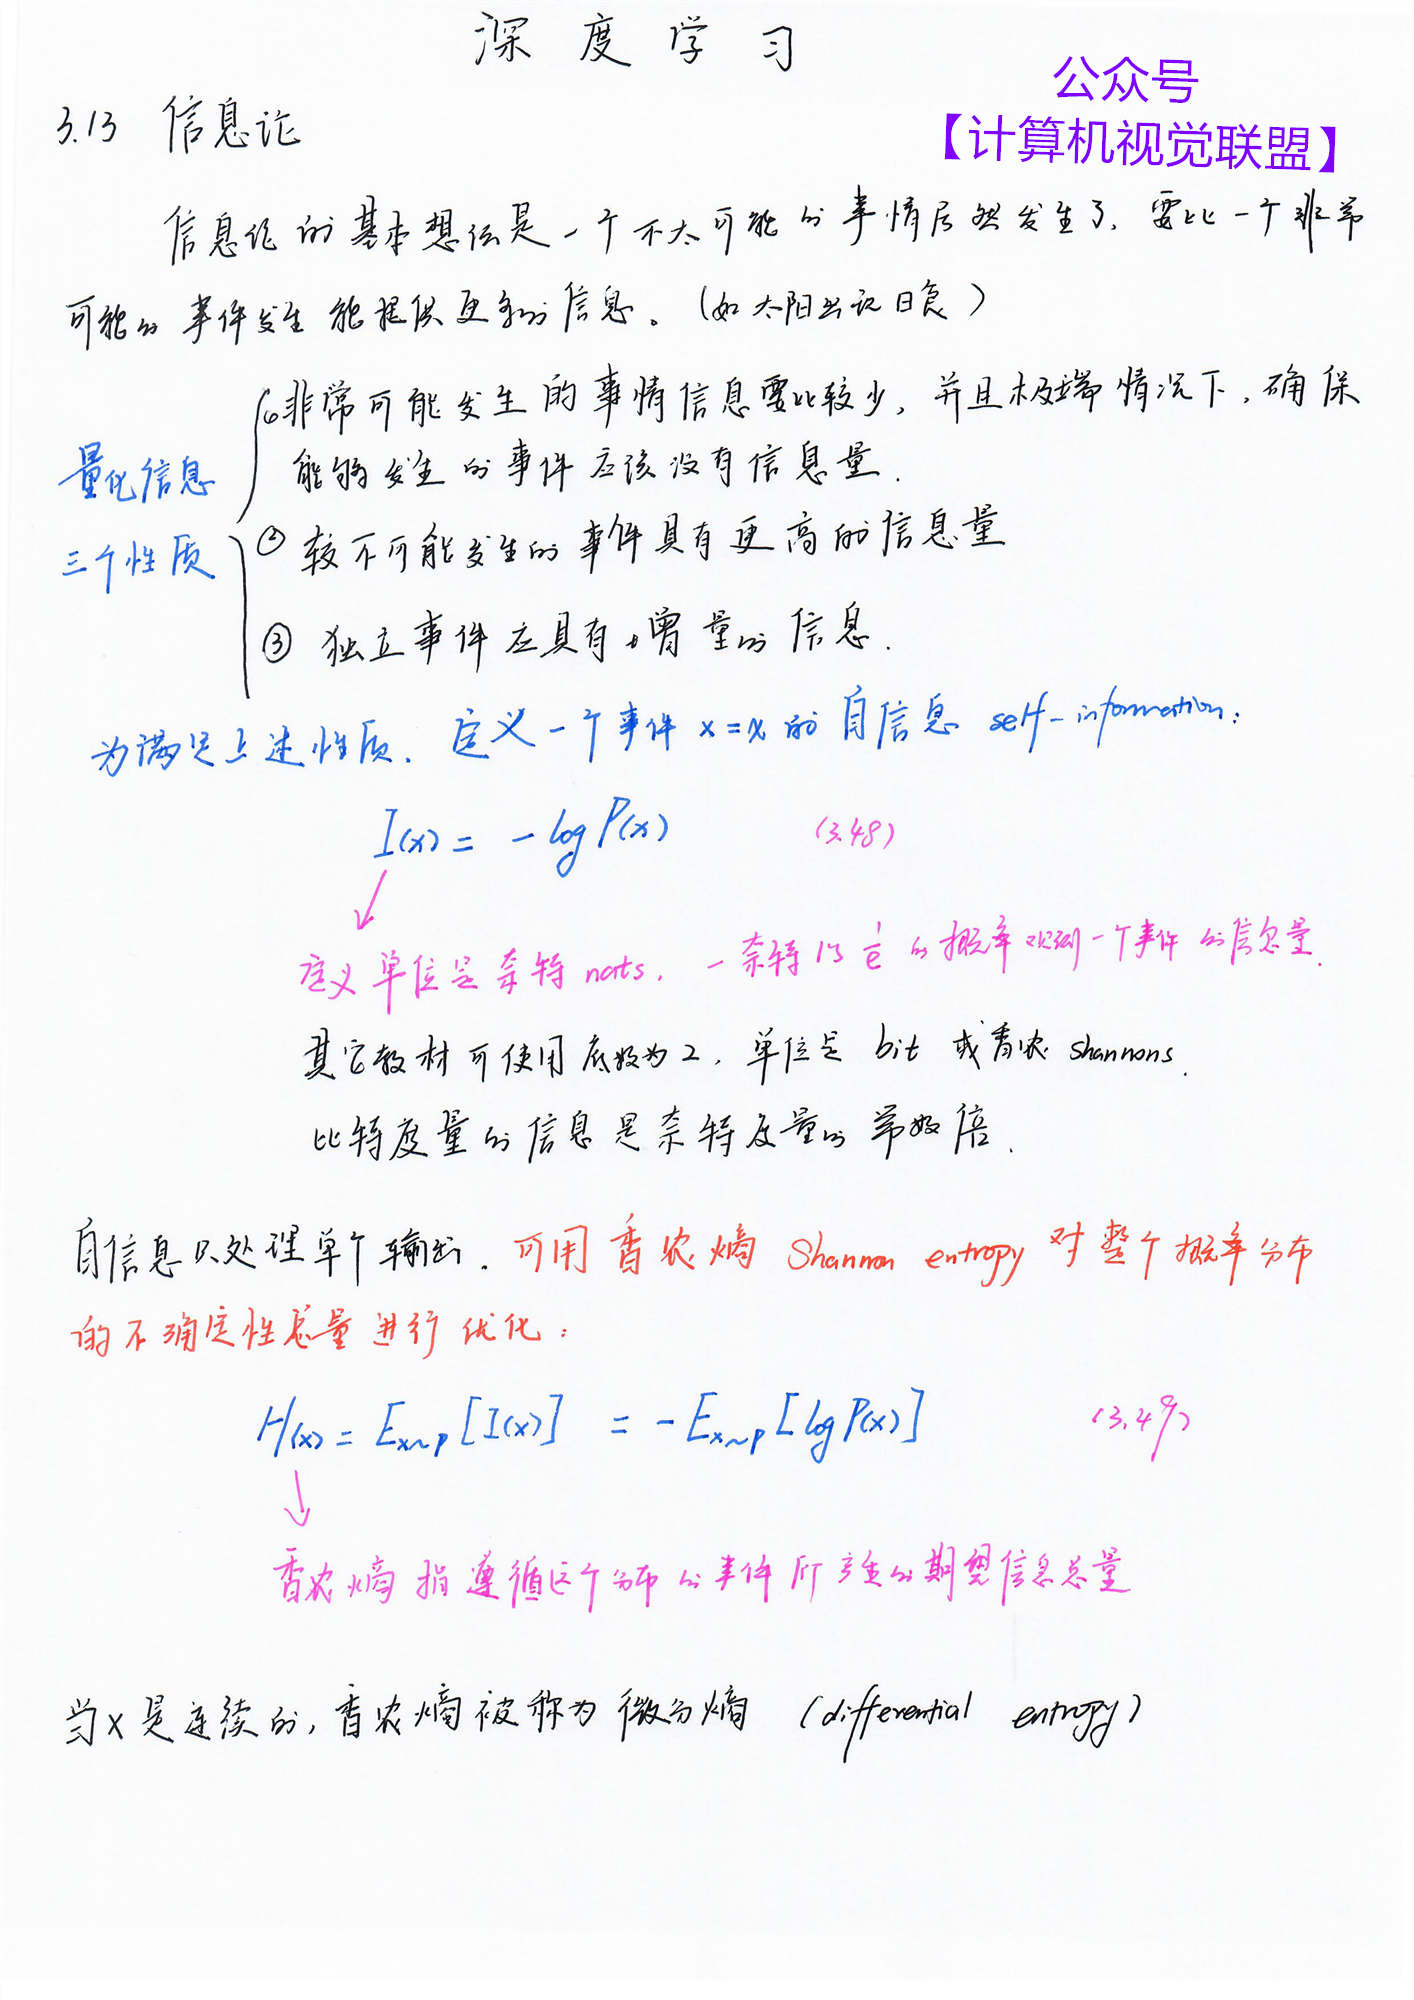 深度学习
公众号
【计算机视觉联盟】
3.13 信息论
信息论的基本想法是一个不太可能的事情居然发生了,要比一个非常
可能的事件发生能提供更多的信息。(如太阳出说日食)
量化信息
三个性质
① 非常可能发生的事情信息要比较少,并且极端情况下,确保
能够发生的事件应该没有信息量.
② 较不可能发生的事件具有更高的信息量
③ 独立事件应具有增量的信息.
为满足上述性质.定义一个事件 x = x 的自信息 self-information:
I(x) = - log P(x) (3.48)
定义单位是奈特 nats, 一奈特以 1/e 的概率观测一个事件的信息量.
其它教材可使用底数为2,单位是 bit 或香农 shannons.
比特度量的信息是奈特度量的常数倍.
自信息只处理单个输出.可用香农熵 Shannon entropy 对整个概率分布
的不确定性总量进行优化:
H(x) = E_{x~P}[I(x)] = -E_{x~P}[log P(x)] (3.49)
香农熵指遵循这个分布的事件所产生的期望信息总量
当 x 是连续的,香农熵被称为微分熵 (differential entropy)